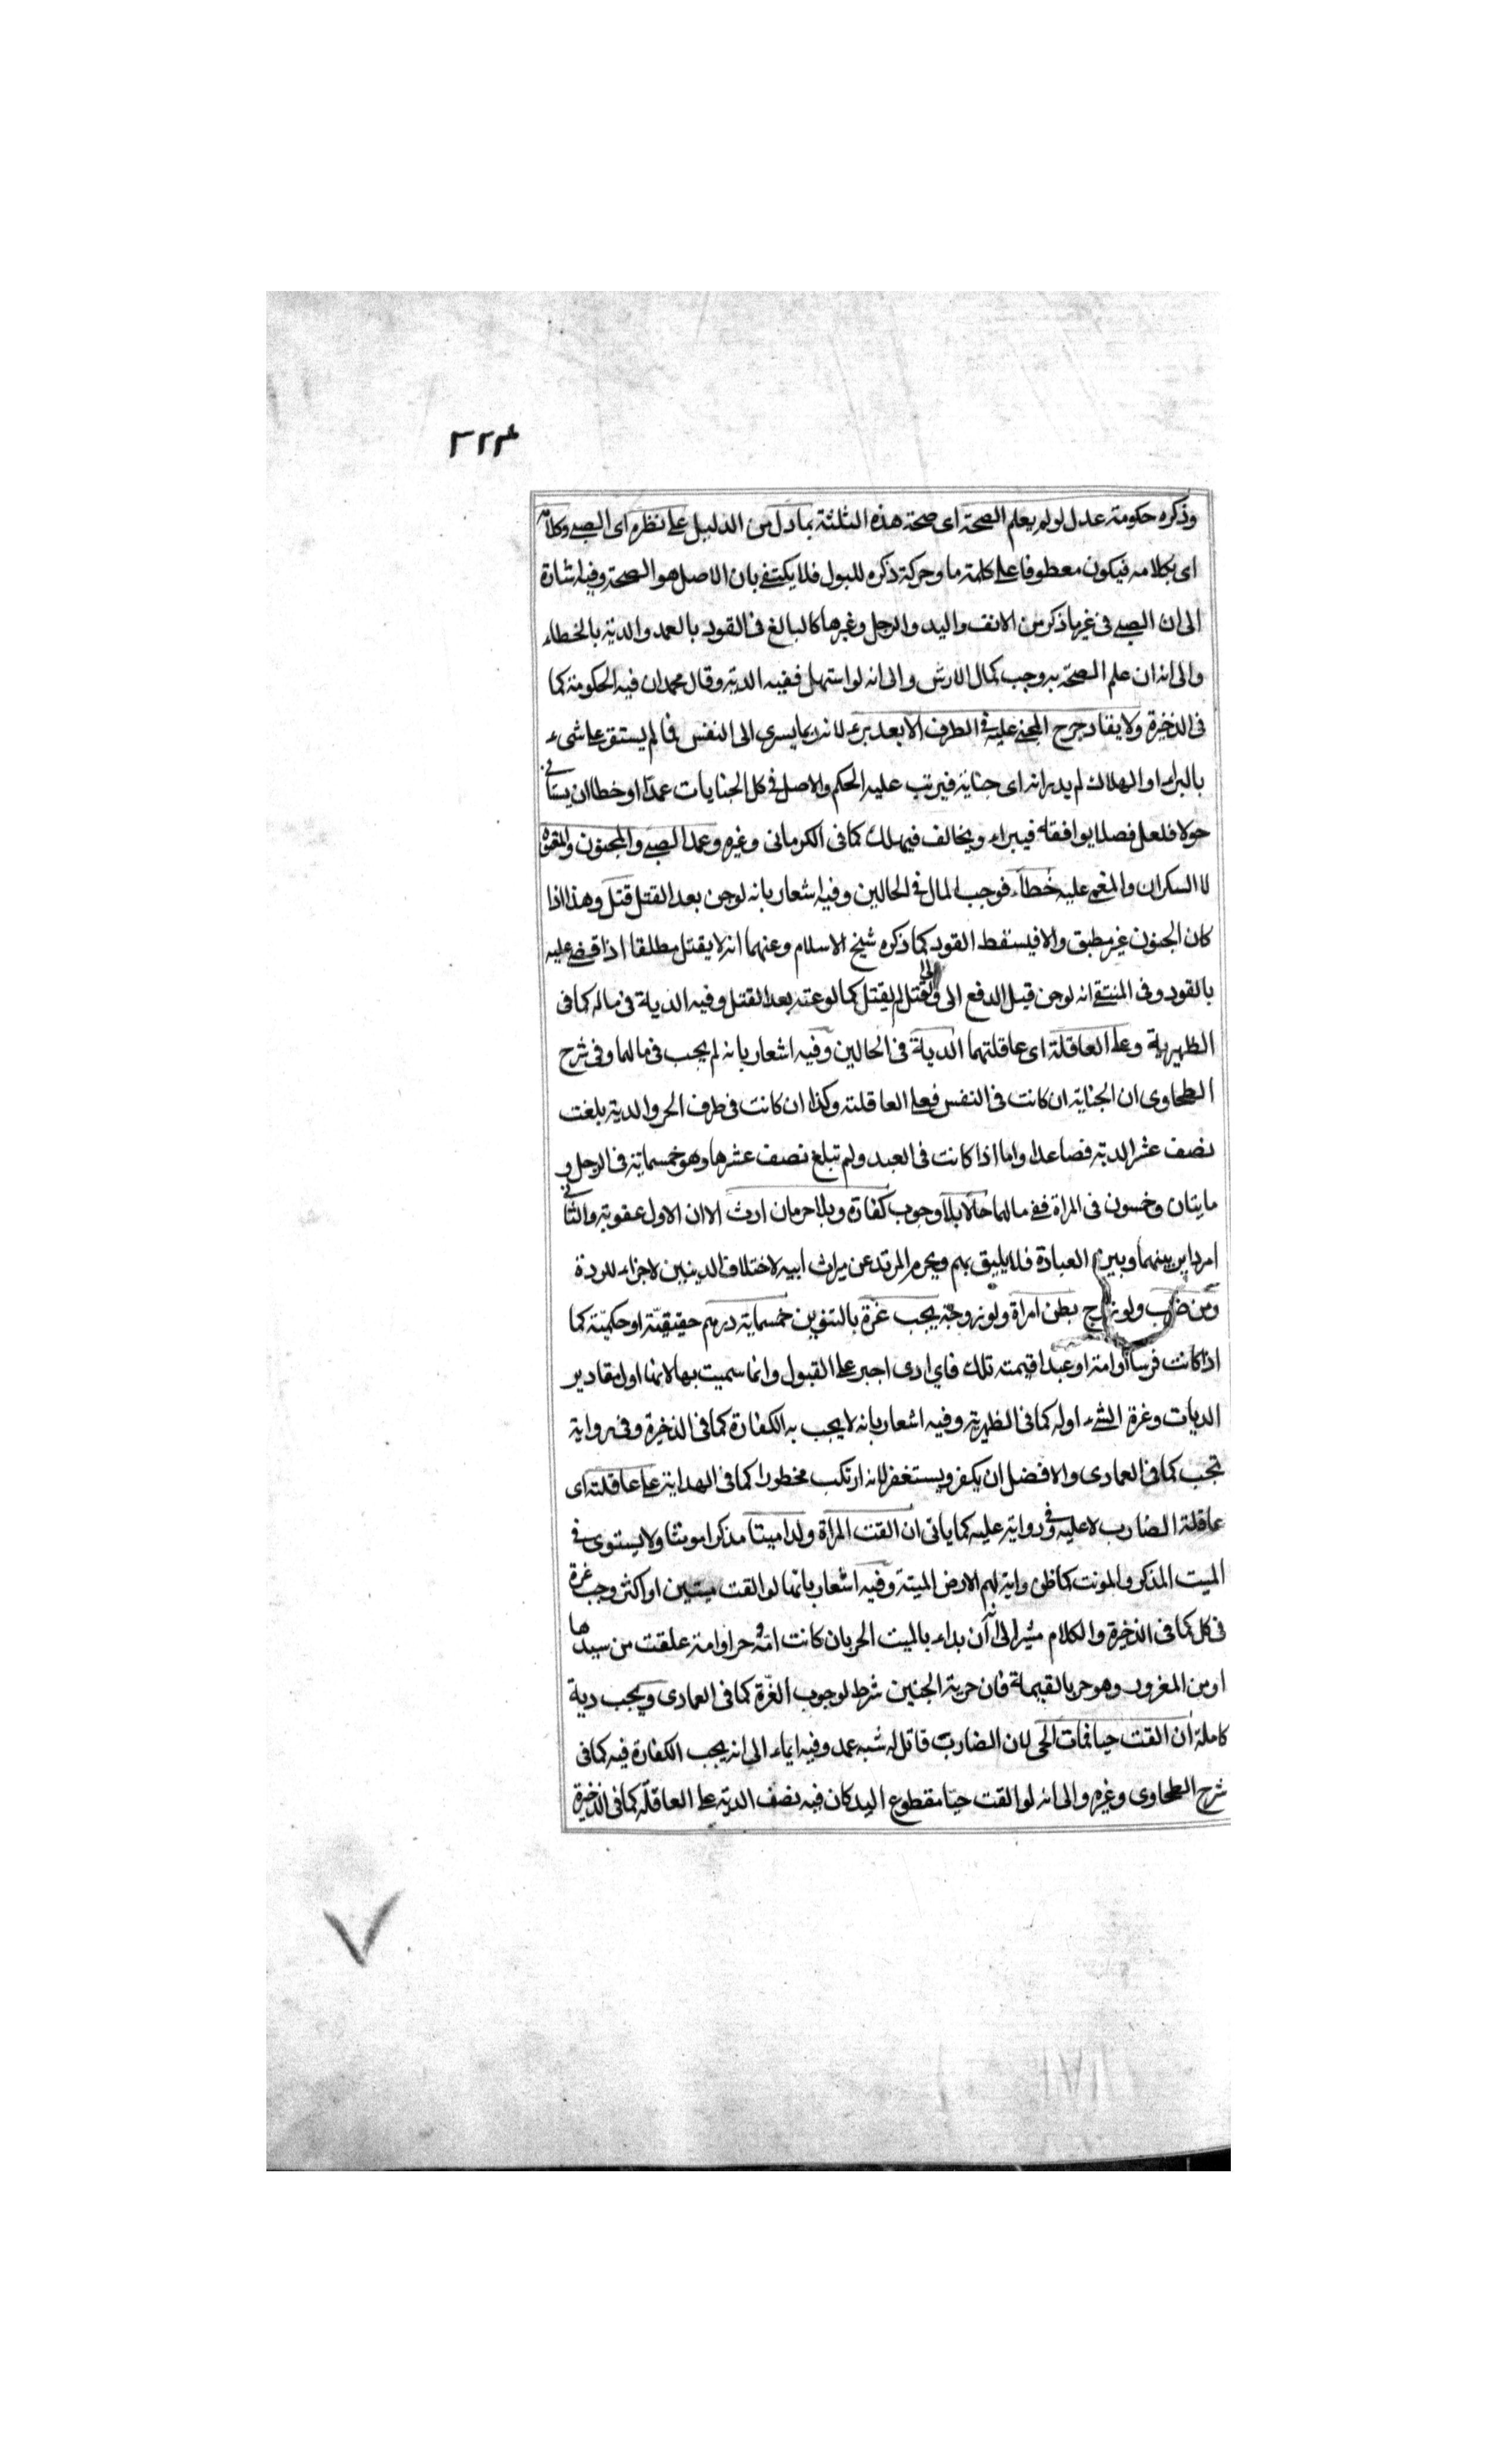 ٣٢٤
وذكره حكومة عدل لو لم يعلم الصحة اى صحة هذه الثلثة بما دل من الدليل على نظره اى الصبى وكلامه
اى بكلامه فيكون معطوفا على كلمة ما وحركة ذكره للبول فلا يكتفى بان الاصل هو الصحة وفيه اشارة
الى ان الصبى فى غير ما ذكر من الانف واليد والرجل وغيرها كالبالغ فى القود بالعمد والدية بالخطاء
والى انه ان علم الصحة به وجب كمال الارش والى انه لو استهل ففيه الدية وقال محمد ان فيه الحكومة كما
فى الذخيرة ولا يقاد جرح المجنى عليه فى الطرف الا بعد برء لانه ربما يسرى الى النفس فما لم يستقر على شىء
بالبراء او الهلاك لم يدر انه اى جناية فيرتب عليه الحكم والاصل فى كل الجنايات عمدا او خطا ان يستأنى
حولا فلعل فصلا يوافقه فيبراء ويخالف فيهلك كما فى الكرمانى وغيره وعمد الصبى والمجنون والمعتوه
لا السكران والمغمى عليه خطاء فوجب المال فى الحالين وفيه اشعار بانه لو جن بعد القتل قتل وهذا اذا
كان الجنون غير مطبق والا فيسقط القود كما ذكره شيخ الاسلام وعنهما انه لا يقتل مطلقا اذا قضى عليه
بالقود وفى المنتقى انه لو جن قبل الدفع الى ولى القتل لم يقتل كما لو عته بعد القتل وفيه الدية فى ماله كما فى
الظهيرية وعلى العاقلة اى عاقلتهما الدية فى الحالين وفيه اشعار بانه لم يجب فى مالهما وفى شرح
الطحاوى ان الجناية ان كانت فى النفس فعلى العاقلة وكذا ان كانت فى طرف الحر والدية بلغت
نصف عشر الدية فصاعدا واما اذا كانت فى العبد ولم تبلغ نصف عشرها وهو خمسماية فى الرجل و
مايتان وخمسون فى المراة ففى مالهما حالا بلا وجوب كفارة وبلا حرمان ارث الا ان الاول عقوبة والثانى
امر داير بينهما وبين العبادة فلا يليق بهم ويحرم المرتد عن ميراث ابيه لاختلاف الدينين لا جزاء للردة
ومن ضرب ولو زوج بطن امراة ولو زوجة يجب غرة بالتنوين خمسماية درهم حقيقية او حكمية كما
اذا كانت فرسا او امة او عبدا قيمته تلك فاى ادى اجبر على القبول وانما سميت بها لانها اول مقادير
الديات وغرة الشىء اوله كما فى الظهيرية وفيه اشعار بانه لا يجب به الكفارة كما فى الذخيرة وفى رواية
تجب كما فى العمادى والافضل ان يكفر ويستغفر لانه ارتكب محظورا كما فى الهداية على عاقلته اى
عاقلة الضارب لا عليه وفى رواية عليه كما ياتى ان القت المراة ولدا ميتا مذكرا مونثا ولا يستوى فى
الميت المذكر والمونث كما ظن واية لهم الارض الميتة وفيه اشعار بانها لو القت ميتين او اكثر وجب غرة
فى كل كما فى الذخيرة والكلام مشير الى ان بداء بالميت الحر بان كانت امه حرا او امة علقت من سيدها
او من المغرور وهو حر بالقيمة فان حرية الجنين شرط لوجوب الغرة كما فى العمادى ويجب دية
كاملة ان القت حيا فمات الحى لان الضارب قاتل له شبه عمد وفيه ايماء الى انه يجب الكفارة فيه كما فى
شرح الطحاوى وغيره والى انه لو القت حيا مقطوع اليد كان فيه نصف الدية على العاقلة كما فى الذخيرة